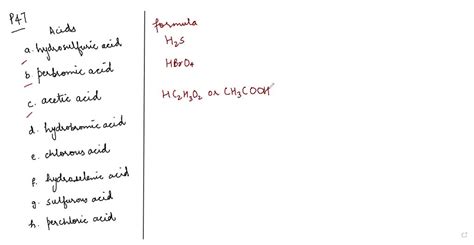 P47
Acids
formula
a. hydrosulfuric acid
H2S
b. perbromic acid
HBrO4
c. acetic acid
HC2H3O2 or CH3COOH
d. hydrobromic acid
e. chlorous acid
f. hydroselenic acid
g. sulfurous acid
h. perchloric acid